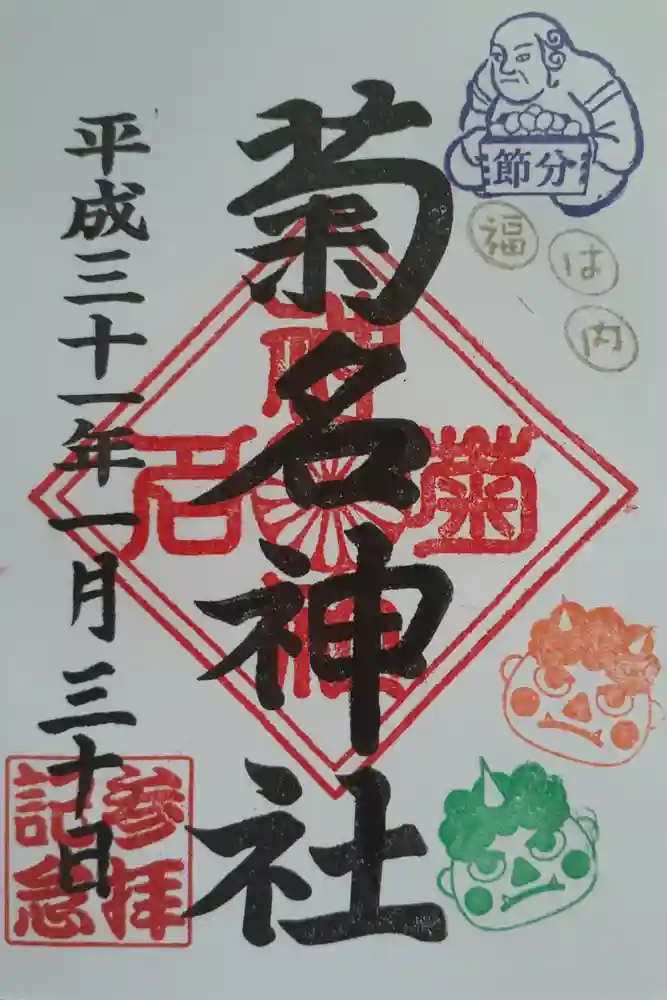 節分
福
は
内
菊名神社
平成三十一年一月三十日
菊
名
神
社
参拝
記念